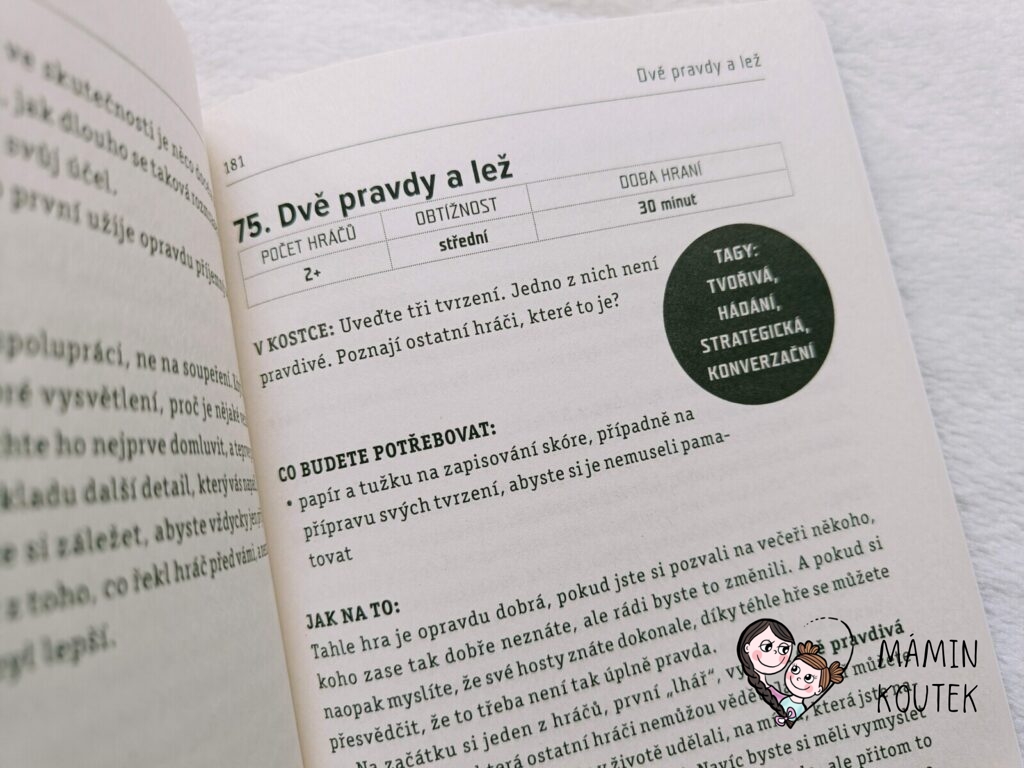 ve skutečnosti je něco
jak dlouho se taková
svůj účel.
první užije opravdu
spolupráci, ne na soupeření.
vysvětlení, proč je nějaké
ho nejprve domluvit, a
další detail, který vás
si záležet, abyste vždycky
z toho, co řekl hráč před vámi, a
lepší.
Dvě pravdy a lež
181
75. Dvě pravdy a lež
POČET HRÁČŮ OBTÍŽNOST DOBA HRANÍ
2+ střední 30 minut
TAGY:
TVOŘIVÁ,
HÁDÁNÍ,
STRATEGICKÁ,
KONVERZAČNÍ
V KOSTCE: Uveďte tři tvrzení. Jedno z nich není
pravdivé. Poznají ostatní hráči, které to je?
CO BUDETE POTŘEBOVAT:
• papír a tužku na zapisování skóre, případně na
přípravu svých tvrzení, abyste si je nemuseli pama-
tovat
JAK NA TO:
Tahle hra je opravdu dobrá, pokud jste si pozvali na večeři někoho,
koho zase tak dobře neznáte, ale rádi byste to změnili. A pokud si
naopak myslíte, že své hosty znáte dokonale, díky téhle hře se můžete
přesvědčit, že to třeba není tak úplně pravda.
Na začátku si jeden z hráčů, první „lhář“, pravdivá
která ostatní hráči nemůžou můžete
v životě udělali, na která
Navíc byste si měli vymyslet
ale přitom to
MÁMIN
KOUTEK